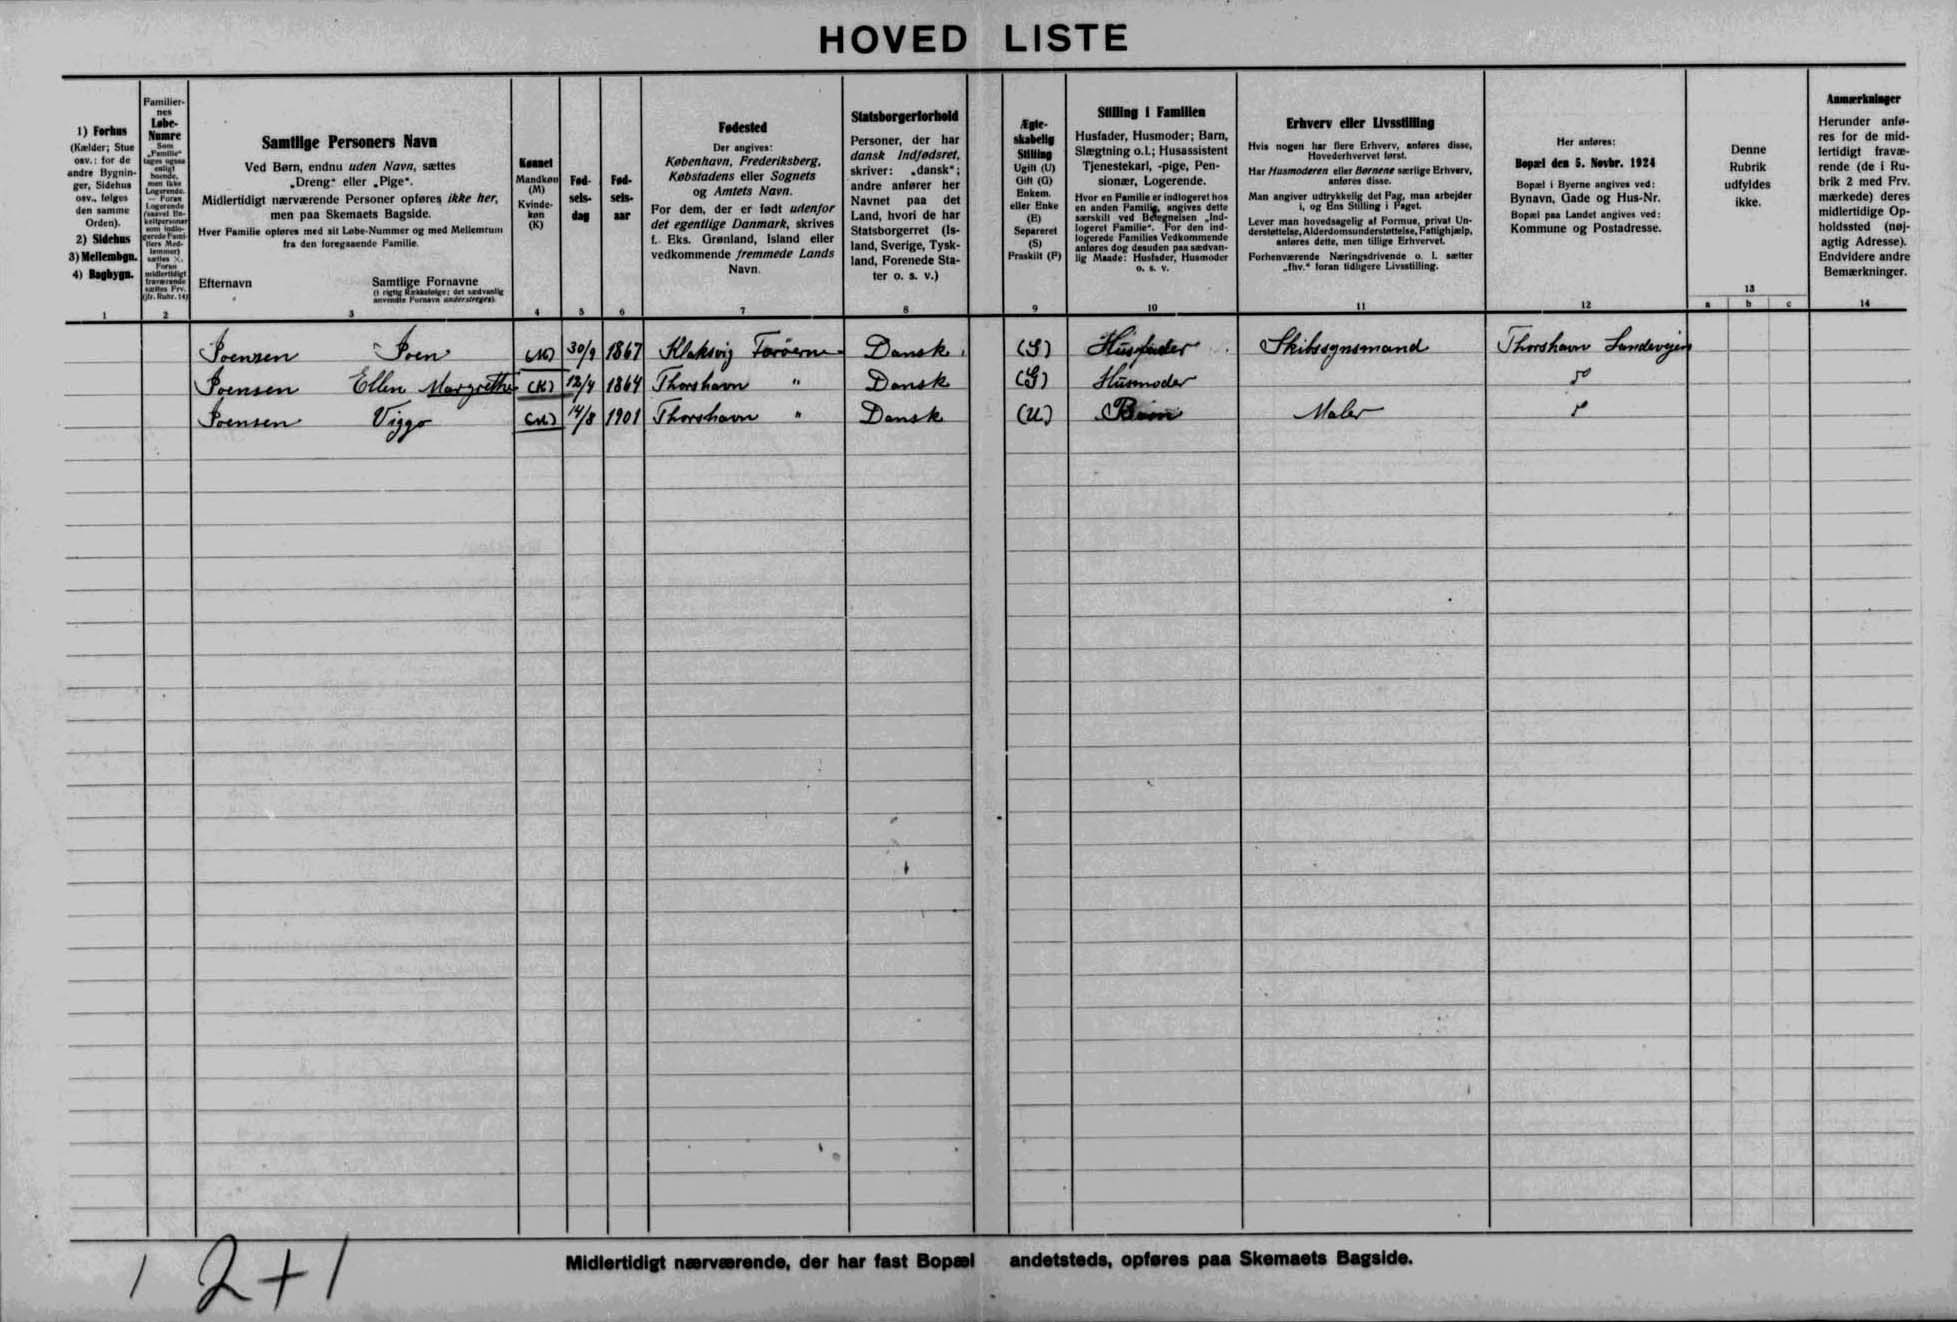 HOVED LISTE
1) Forhus
(Kælder; Stue
osv.: for de
andre Bygnin-
ger, Sidehus
osv., følges
den samme
Orden).
2) Sidehus
3) Mellembgn.
4) Bagbygn.
1
Familier-
nes
Løbe-
Numre
Som
„Familie“
tages ogsaa
enligt
boende,
men ikke
Logerende.
— Foran
Logerende
(saavel En-
keltpersoner
som indlo-
gerede Fami-
liers Med-
lemmer)
sættes ×.
Foran
midlertidigt
fraværende
sættes Frv.
(jfr. Rubr. 14)
2
Samtlige Personers Navn
Ved Børn, endnu uden Navn, sættes
„Dreng“ eller „Pige“.
Midlertidigt nærværende Personer opføres ikke her,
men paa Skemaets Bagside.
Hver Familie opføres med sit Løbe-Nummer og med Mellemrum
fra den foregaaende Familie.
Efternavn
Samtlige Fornavne
(i rigtig Rækkefølge; det sædvanlig
anvendte Fornavn understreges).
3
Kønnet
Mandkøn
(M)
Kvinde-
køn
(K)
4
Fød-
sels-
dag
5
Fød-
sels-
aar
6
Fødested
Der angives:
København, Frederiksberg,
Købstadens eller Sognets
og Amtets Navn.
For dem, der er født udenfor
det egentlige Danmark, skrives
f. Eks. Grønland, Island eller
vedkommende fremmede Lands
Navn.
7
Statsborgerforhold
Personer, der har
dansk Indfødsret,
skriver: „dansk“;
andre anfører her
Navnet paa det
Land, hvori de har
Statsborgerret (Is-
land, Sverige, Tysk-
land, Forenede Sta-
ter o. s. v.)
8
Ægte-
skabelig
Stilling
Ugift (U)
Gift (G)
Enkem.
eller Enke
(E)
Separeret
(S)
Fraskilt (F)
9
Stilling i Familien
Husfader, Husmoder; Barn,
Slægtning o.l.; Husassistent
Tjenestekarl, -pige, Pen-
sionær, Logerende.
Hvor en Familie er indlogeret hos
en anden Familie, angives dette
særskilt ved Betegnelsen „Ind-
logeret Familie“. For den ind-
logerede Families Vedkommende
anføres dog desuden paa sædvan-
lig Maade: Husfader, Husmoder
o. s. v.
10
Erhverv eller Livsstilling
Hvis nogen har flere Erhverv, anføres disse,
Hovederhvervet først.
Har Husmoderen eller Børnene særlige Erhverv,
anføres disse.
Man angiver udtrykkelig det Fag, man arbejder
i, og Ens Stilling i Faget.
Lever man hovedsagelig af Formue, privat Un-
derstøttelse, Alderdomsunderstøttelse, Fattighjælp,
anføres dette, men tillige Erhvervet.
Forhenværende Næringsdrivende o. l. sætter
„fhv.“ foran tidligere Livsstilling.
11
Her anføres:
Bopæl den 5. Novbr. 1924
Bopæl i Byerne angives ved:
Bynavn, Gade og Hus-Nr.
Bopæl paa Landet angives ved:
Kommune og Postadresse.
12
Denne
Rubrik
udfyldes
ikke.
13
a b c
Anmærkninger
Herunder anfø-
res for de mid-
lertidigt fravæ-
rende (de i Ru-
brik 2 med Frv.
mærkede) deres
midlertidige Op-
holdssted (nøj-
agtig Adresse).
Endvidere andre
Bemærkninger.
14
Joensen Joen (M) 30/9 1867 Klaksvig Færöerne Dansk (G) Husfader Skibssynsmand Thorshavn Landevejen
Joensen Ellen Margrethe (K) 12/4 1864 Thorshavn " Dansk (G) Husmoder do
Joensen Viggo (M) 14/8 1901 Thorshavn " Dansk (U) Barn Maler
Midlertidigt nærværende, der har fast Bopæl andetsteds, opføres paa Skemaets Bagside.
1 2+1